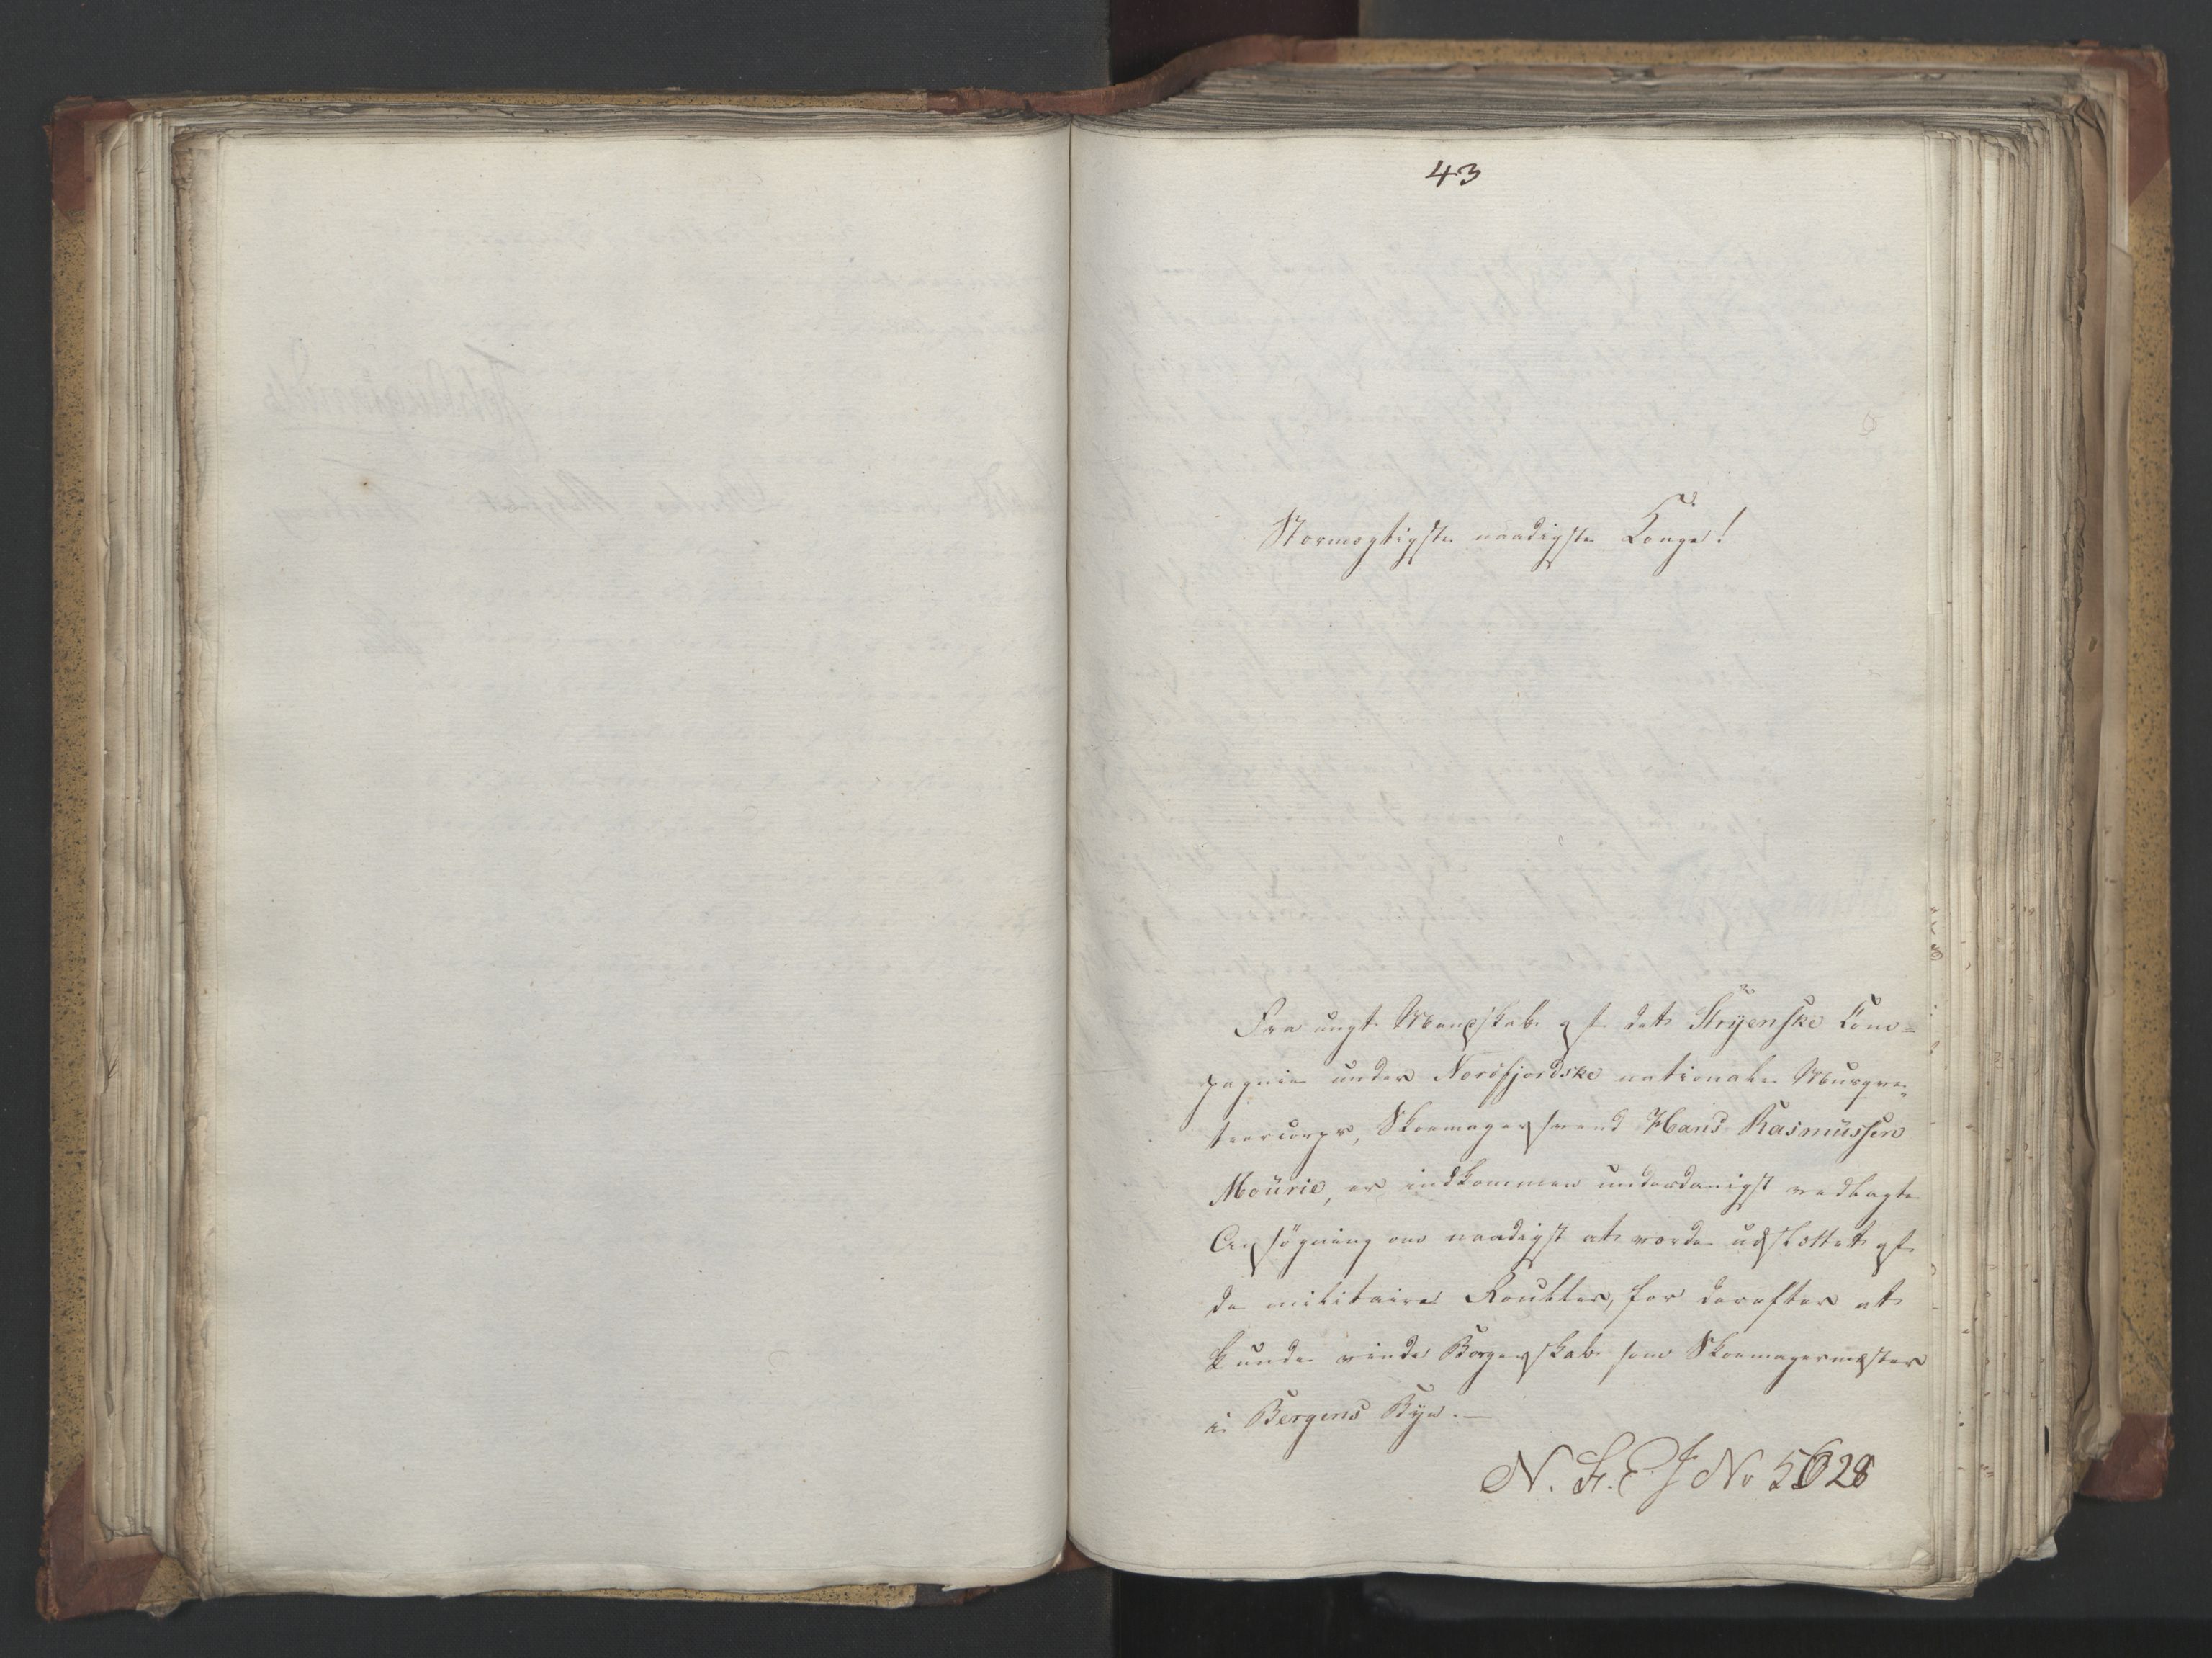 43
Stormægtigste naadigste Konge!
Fra ungt Mandskab af det Stryenske Com-
pagnie under Nordfjordske nationale Musque-
teercorps, Skoemagersvend Hans Rasmussen
Mourie, er indkommen underdanigst vedlagte
Ansøgning om naadigst at vorde udslettet af
de militaire Roullér, for derefter at
kunde vinde Borgerskab som Skoemagermester
i Bergens Bye. —
N. F. C. J No 5628